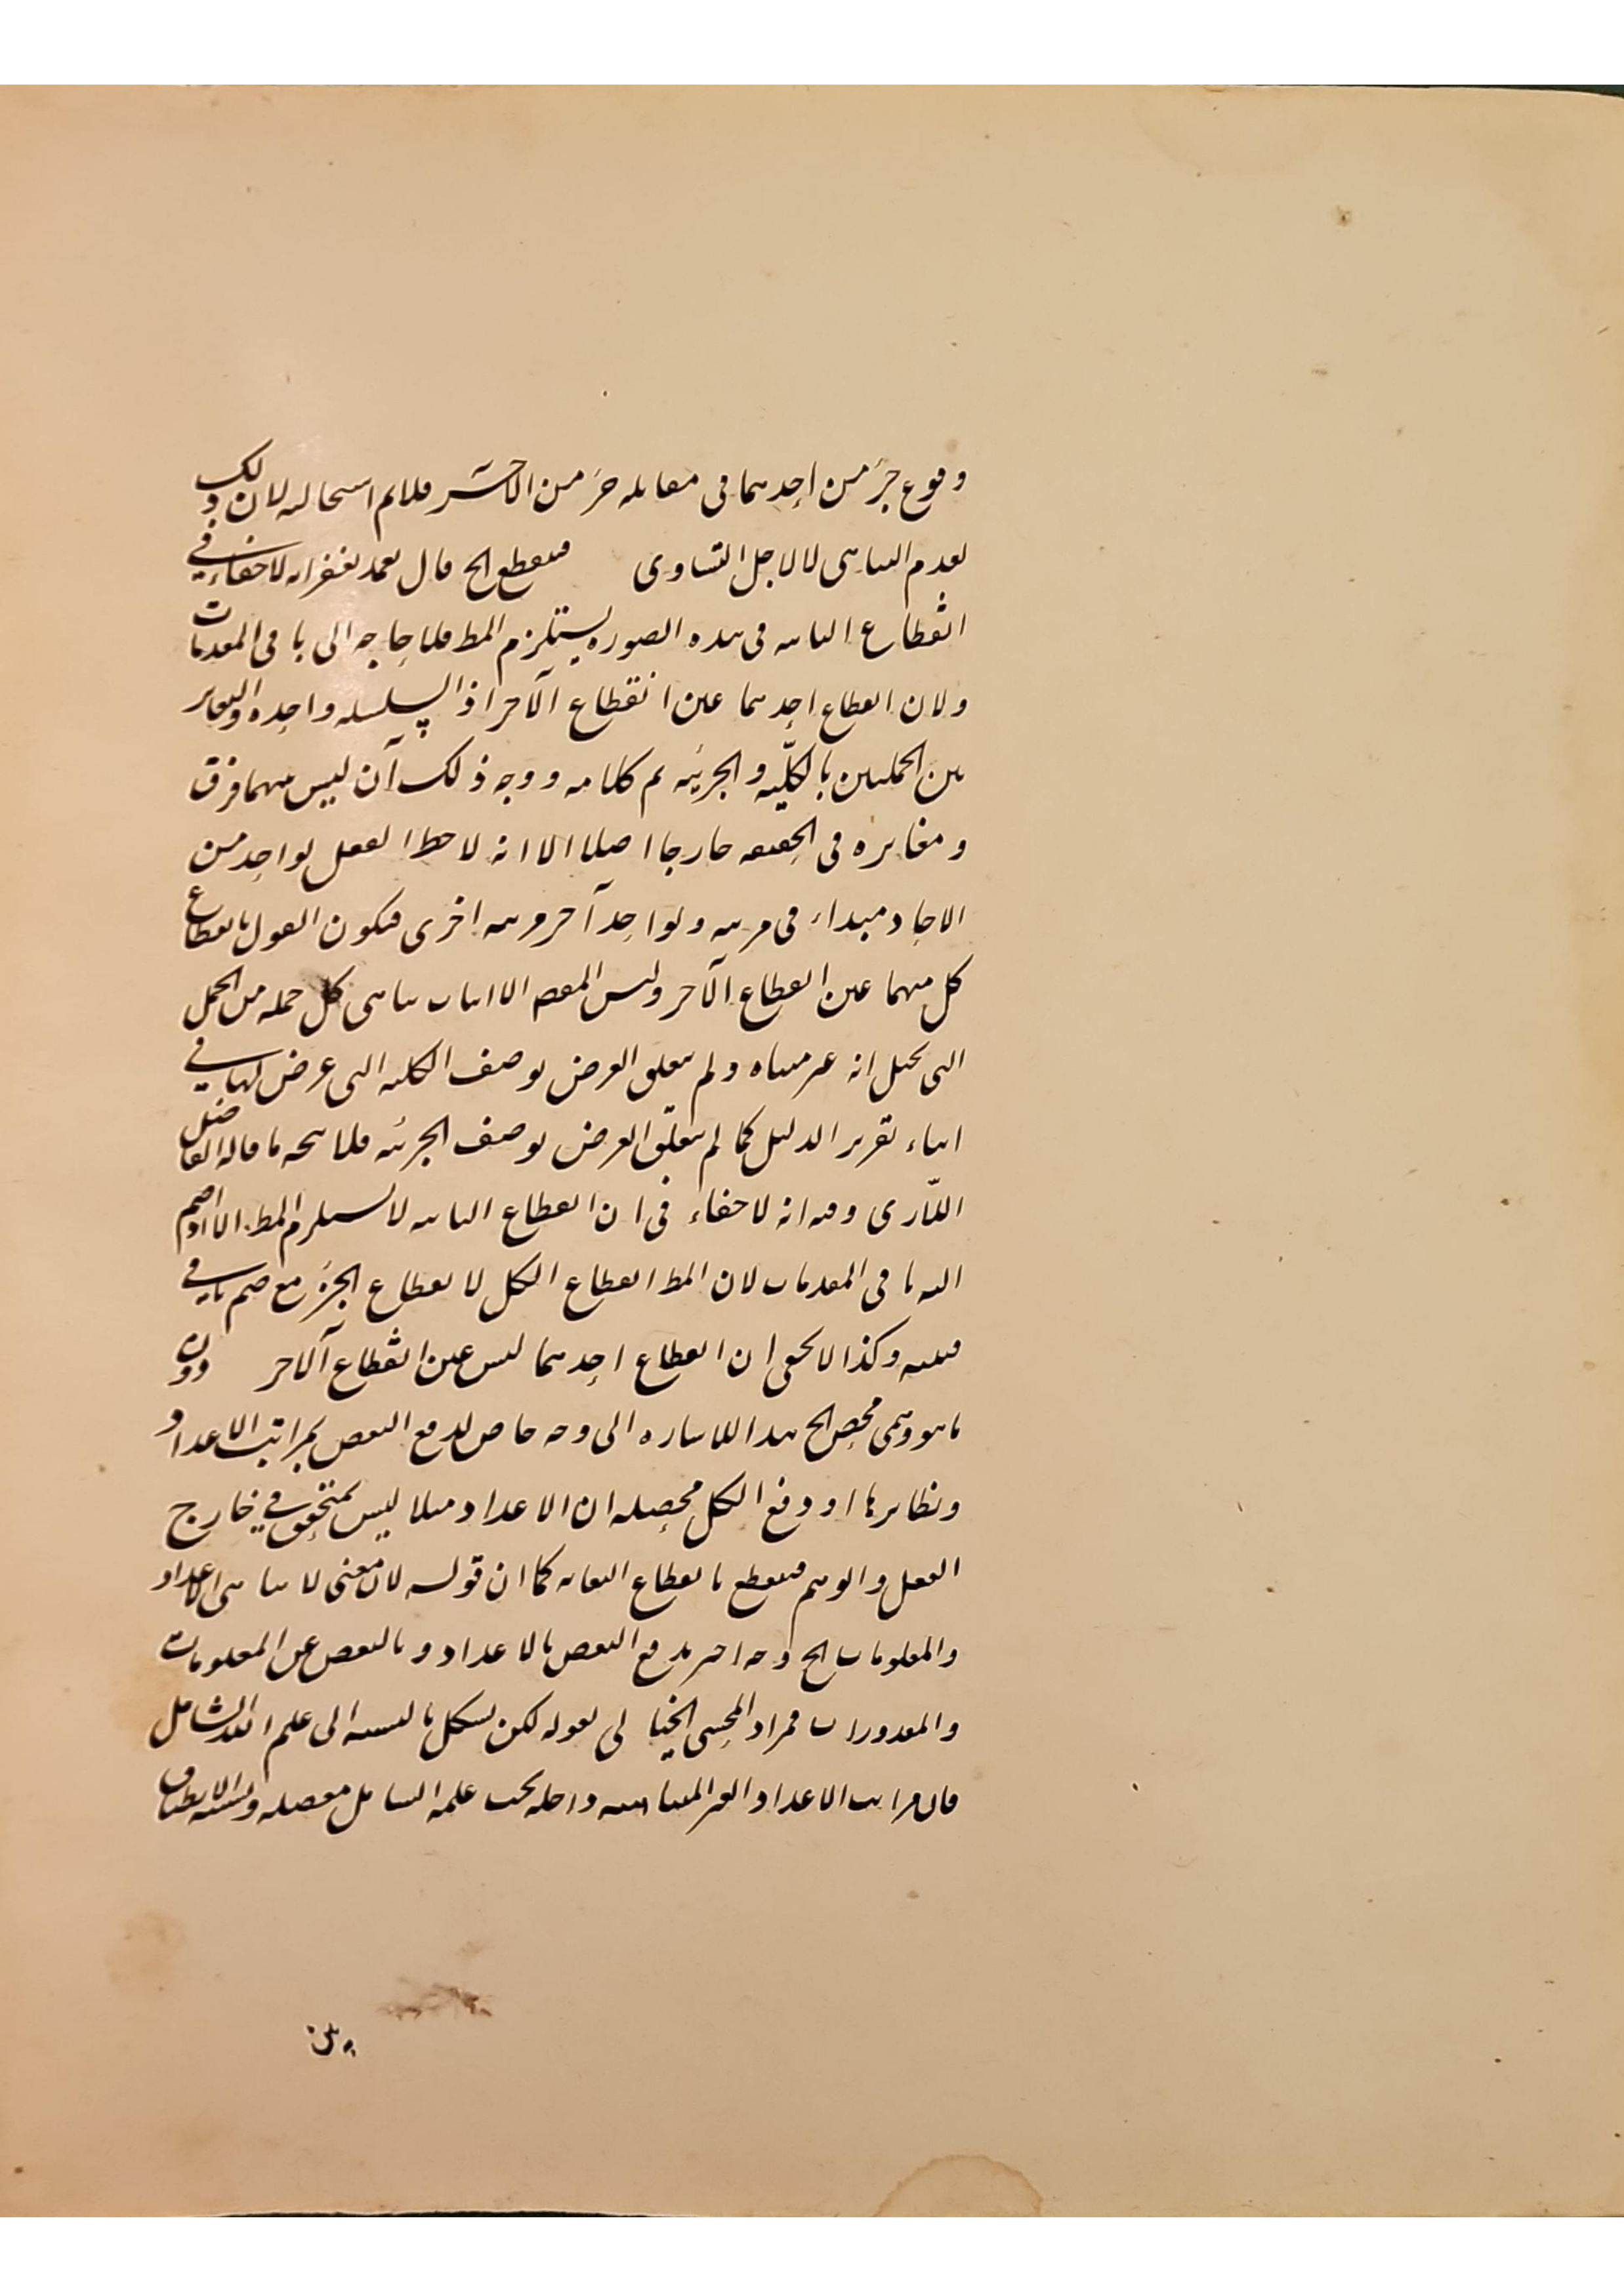 وقوع جزء من احدهما فى مقابله جزء من الآخر فلانم استحالته لان ذلك
لعدم التناهى لا لاجل التساوى فينقطع الخ قال تغمد بغفرانه لا خفاء فى
انقطاع الثانيه فى هذه الصوره يستلزم المط فلا حاجه الى باقى المقدمات
ولان انقطاع احدهما عين انقطاع الآخر اذ السلسله واحده والتغاير
بين الجملتين بالكلّيه والجزئيه تم كلامه ووجه ذلك ان ليس بينهما فرق
ومغايره فى الحقيقه خارجا اصلا الا انه لاحظ العقل لواحد من
الاحاد مبداء فى مرتبه ولواحد آخر مرتبه اخرى فيكون القول بانقطاع
كل منهما عين انقطاع الآخر وليس المقصد الا اثبات تناهى كل جمله من الجمل
التى تخيل انه غير متناه ولم يتعلق الغرض بوصف الكليه التى عرض لها فى
اثناء تقرير الدليل كما لم يتعلق الغرض بوصف الجزئيه فلا يتجه ما قاله الفاضل
اللّارى وفيه انه لا خفاء فى ان انقطاع الثانيه لا يستلزم المط الا اذا ضم
اليه باقى المقدمات لان المط انقطاع الكل لا انقطاع الجزء مع ضم باقى
وكذا لا يخفى ان انقطاع احدهما ليس عين انقطاع الآخر دون
ما هو وهمى محض الخ هذا اللاشاره الى وجه خاص لدفع النقض بمراتب الاعداد
ونظايرها او دفع الكل محصله ان الاعداد مثلا ليس بمتحقق فى خارج
العقل والوهم فينقطع بانقطاع كما ان قوله لان معنى لا تناهى الاعداد
والمعلومات الخ وجه اخر يدفع النقض بالاعداد وبالنقض عن المعلومات
والمقدورات فمراد المحشى الخيالى بقوله لكن يشكل بالنسبه الى علم الله الشامل
فان مراتب الاعداد الغير المتناهيه داخله تحت علمه الشامل مفصله ونسبه الانطباق